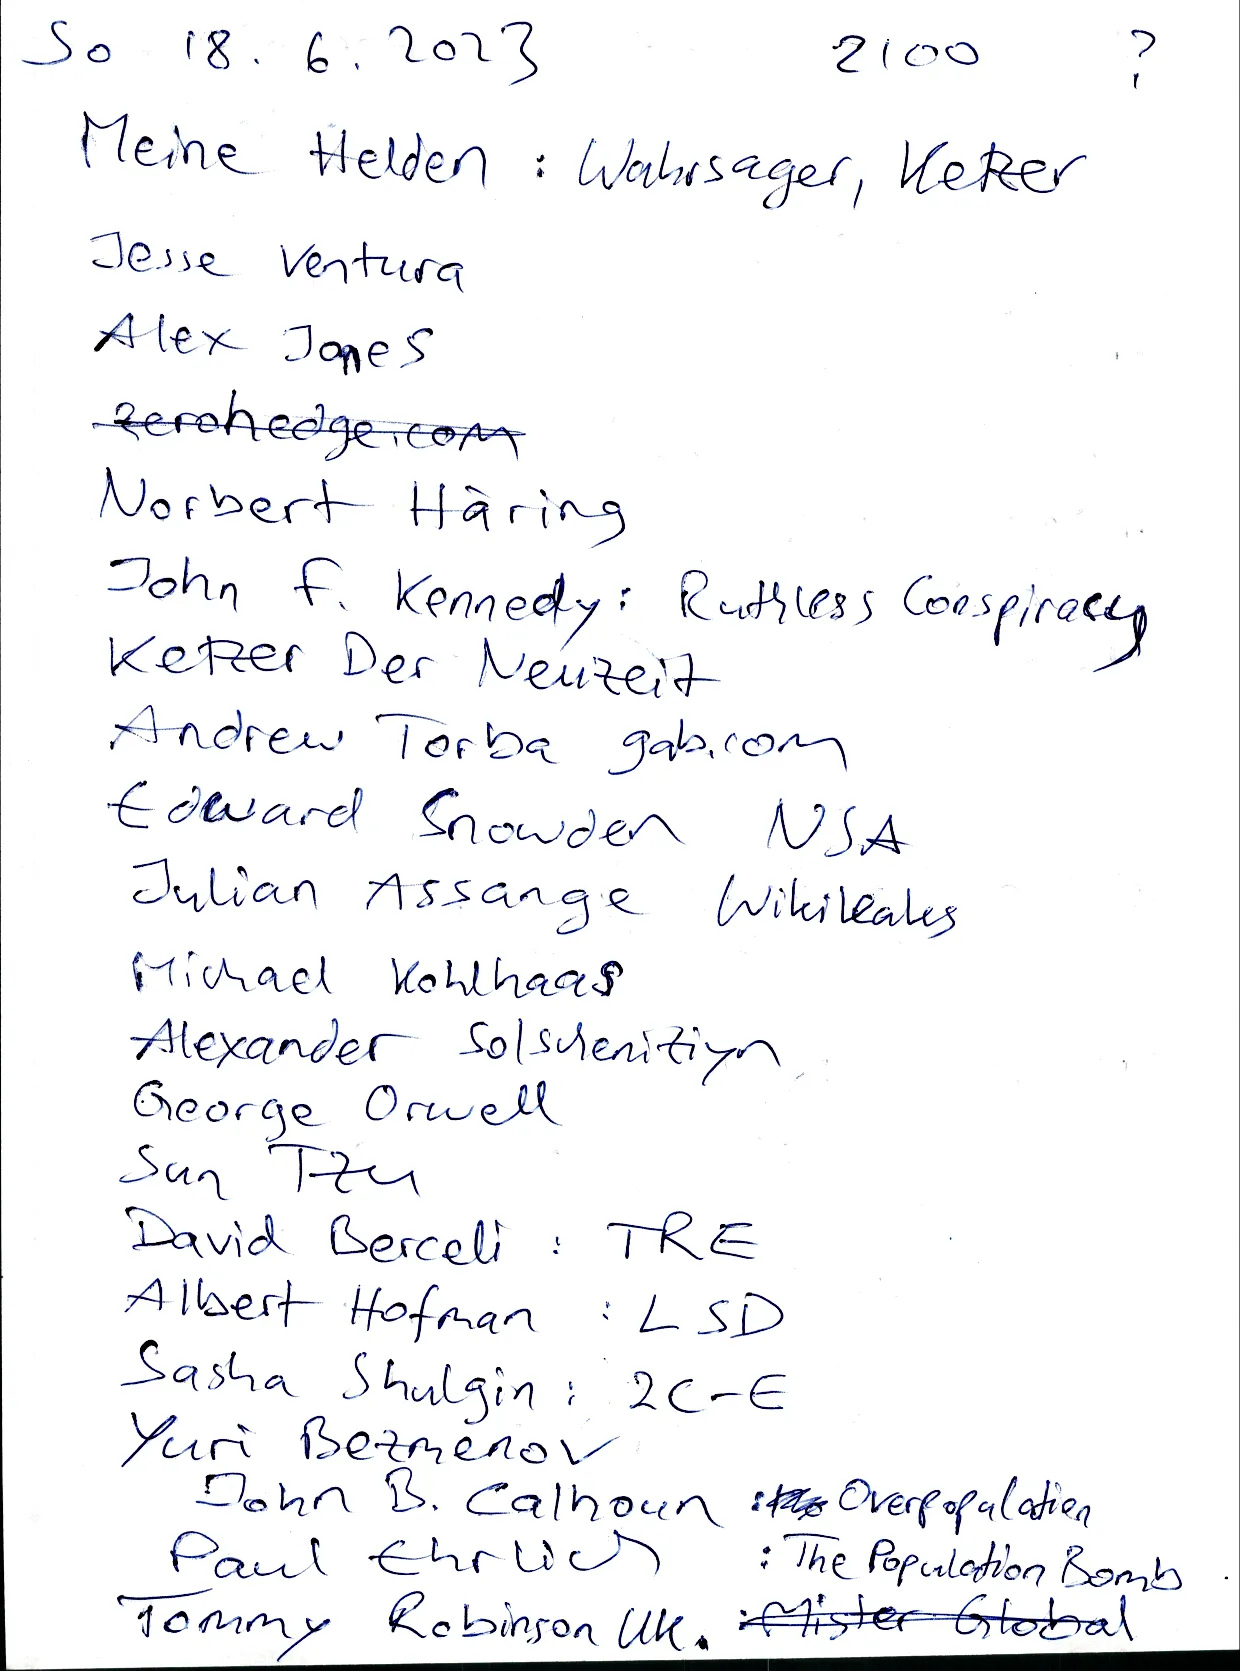 So 18. 6. 2023 2100 ?
Meine Helden : Wahrsager, Ketzer
Jesse Ventura
Alex Jones
zerohedge.com
Norbert Häring
John F. Kennedy: Ruthless Conspiracy
Ketzer Der Neuzeit
Andrew Torba gab.com
Edward Snowden NSA
Julian Assange Wikileaks
Michael Kohlhaas
Alexander Solschenitiyn
George Orwell
Sun Tzu
David Berceli : TRE
Albert Hofman : LSD
Sasha Shulgin : 2C-E
Yuri Bezmenov
John B. Calhoun : Overpopulation
Paul Ehrlich : The Population Bomb
Tommy Robinson UK. : Mister Global